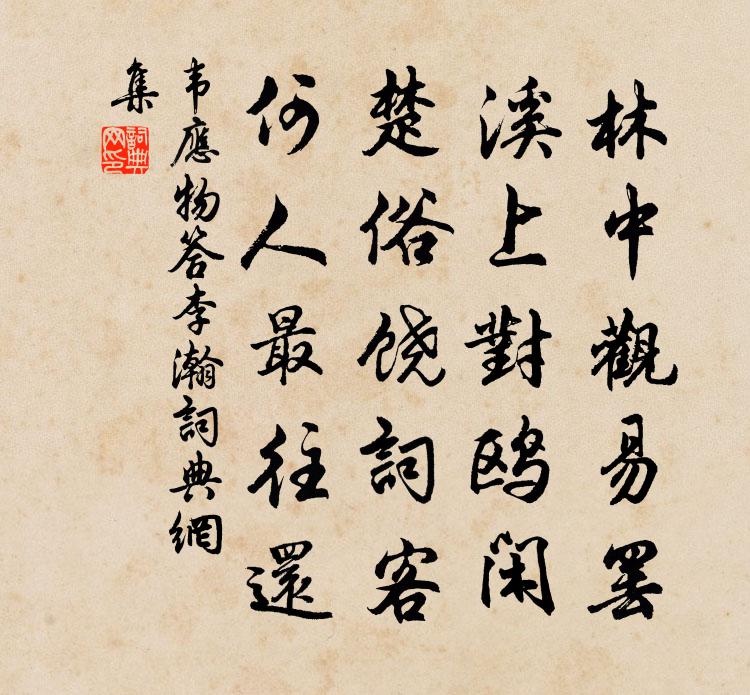 林中觀易罢
溪上對鸥闲
楚俗饶詞客
何人最往還
韦應物答李瀚詞典網
集
詞典
网印